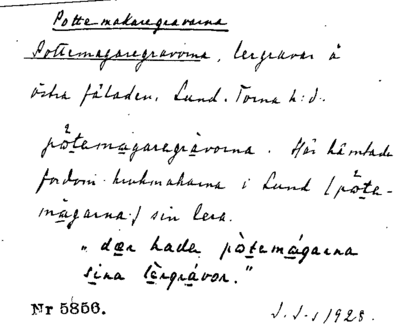 Pottemakaregravarna
Pottemagaregravorna, lergravar å
östra fäladen. Lund. Torna h:d.
pòtemagaregràvorna. Här hämtade
fordom krukmakarna i Lund /pòte-
màgarna/ sin lera.
"dær hade pòtemágarna
sina lèrgrávor."
Nr 5856.
1928